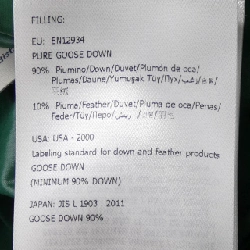 FILLING:
EU: EN12934
PURE GOOSE DOWN
90% Piumino/Down/Duvet/Plumón de oca/
Plumas/Daune/Yumuşak Tüy/Пух/
10% Piuma/Feather/Duvet/Pluma de oca/Penas/
Feder/Tüy/Перо/ریش/
USA: USA - 2000
Labeling standard for down and feather products
GOOSE DOWN
(MINIMUM 90% DOWN)
JAPAN: JIS L 1903 2011
GOOSE DOWN 90%